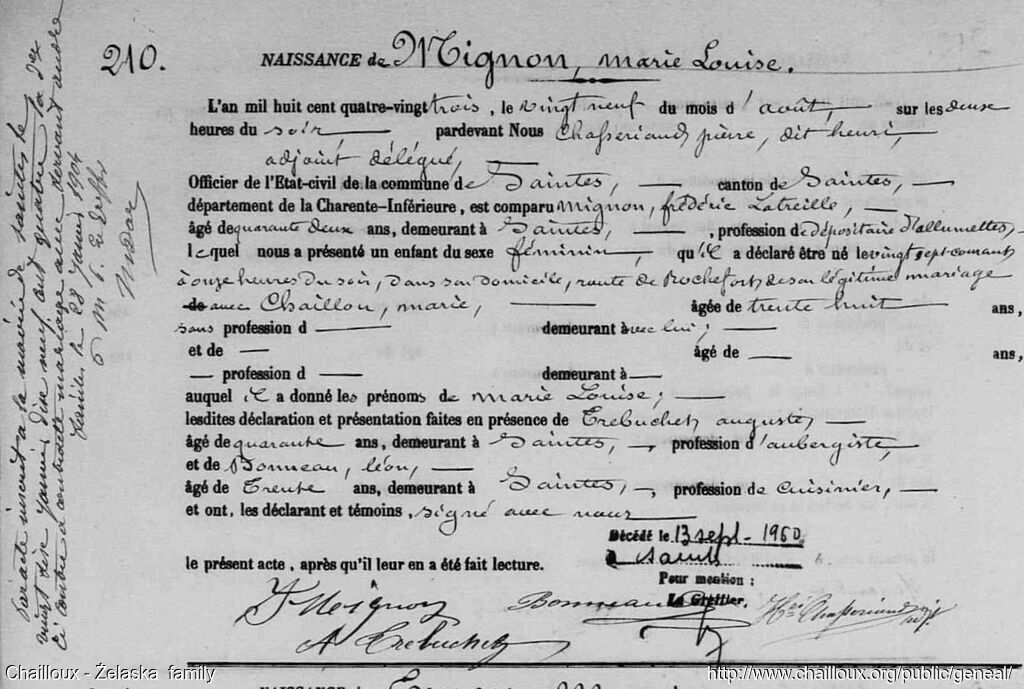 210.
NAISSANCE de Mignon, marie Louise.
L'an mil huit cent quatre-vingt trois, le vingt neuf du mois d'août, sur les deux
heures du soir pardevant Nous Chasseriaud, pierre, dit henri,
adjoint délégué,
Officier de l'Etat-civil de la commune de Saintes, canton de Saintes,
département de la Charente-Inférieure, est comparu mignon, frédéric Latreille,
âgé de quarante deux ans, demeurant à Saintes, profession de dépositaire d'allumettes,
lequel nous a présenté un enfant du sexe féminin, qu'il a déclaré être né le vingt sept courant
à onze heures du soir, dans son domicile, route de Rochefort, de son légitime mariage
de avec Chaillou, marie, âgée de trente huit ans,
sans profession d demeurant avec lui;
et de — âgé de — ans,
— profession d — demeurant à —
auquel il a donné les prénoms de marie Louise;
lesdites déclaration et présentation faites en présence de Trebuchet, auguste,
âgé de quarante ans, demeurant à Saintes, profession d'aubergiste,
et de Bonneau, léon,
âgé de Trente ans, demeurant à Saintes, profession de cuisinier,
et ont, les déclarant et témoins, signé avec nous
Décédé le 13 sept - 1960
à Saintes
le présent acte, après qu'il leur en a été fait lecture.
Pour mention :
Le Greffier,
F Mignon Bonneau Hri Chasseriaud adjt
A Trebuchet
Par acte inscrit à la mairie de Saintes le
vingt six janvier dix neuf cent quatre la dee
ci contre a contracté mariage avec
Saintes le 28 janvier 1904
Chailloux - Żelaska family
http://www.chailloux.org/public/geneal/
NAISSANCE de